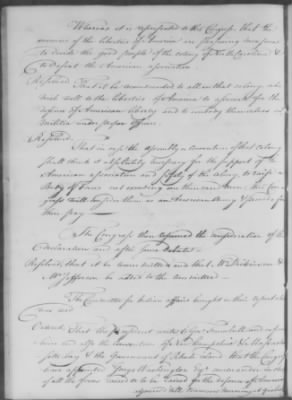 Whereas it is represented to this Congress that the
enemies of the liberties of America are pursuing measures
to divide the good people of the colony of North Carolina &
to defeat the American association
Resolved That it be recommended to all in that colony who
wish well to the liberties of America to associate for the
defence of American liberty and to embody themselves as
militia under proper officers.
Resolved,
That in case the Assembly or Convention of that colony
shall think it absolutely necessary for the support of the
American association and safety of the colony to raise a
Body of forces not exceeding one thousand men, this Con
gress will consider them as an American Army & provide for
their pay —
The Congress then resumed the consideration of the
Declaration and after some debate —
Resolved, that it be committed and that Mr Dickinson &
Mr Jefferson be added to the committee —
The Committee for Indian affairs brought in their report which
was read
Ordered, That the President write to Gov. Trumbull and
and also the Convention of New Hampshire & the Massachu
setts bay & the Government of Rhode Island that the Congress
have appointed George Washington Esqr commander in chief
of all the forces raised or to be raised for the defence of America